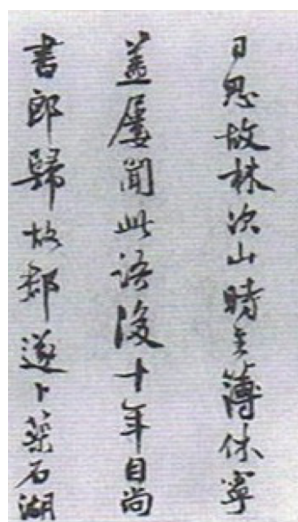 日思故林次山時主簿休寧
蓋屢聞此語後十年自尚
書郎歸故郡遂卜築石湖